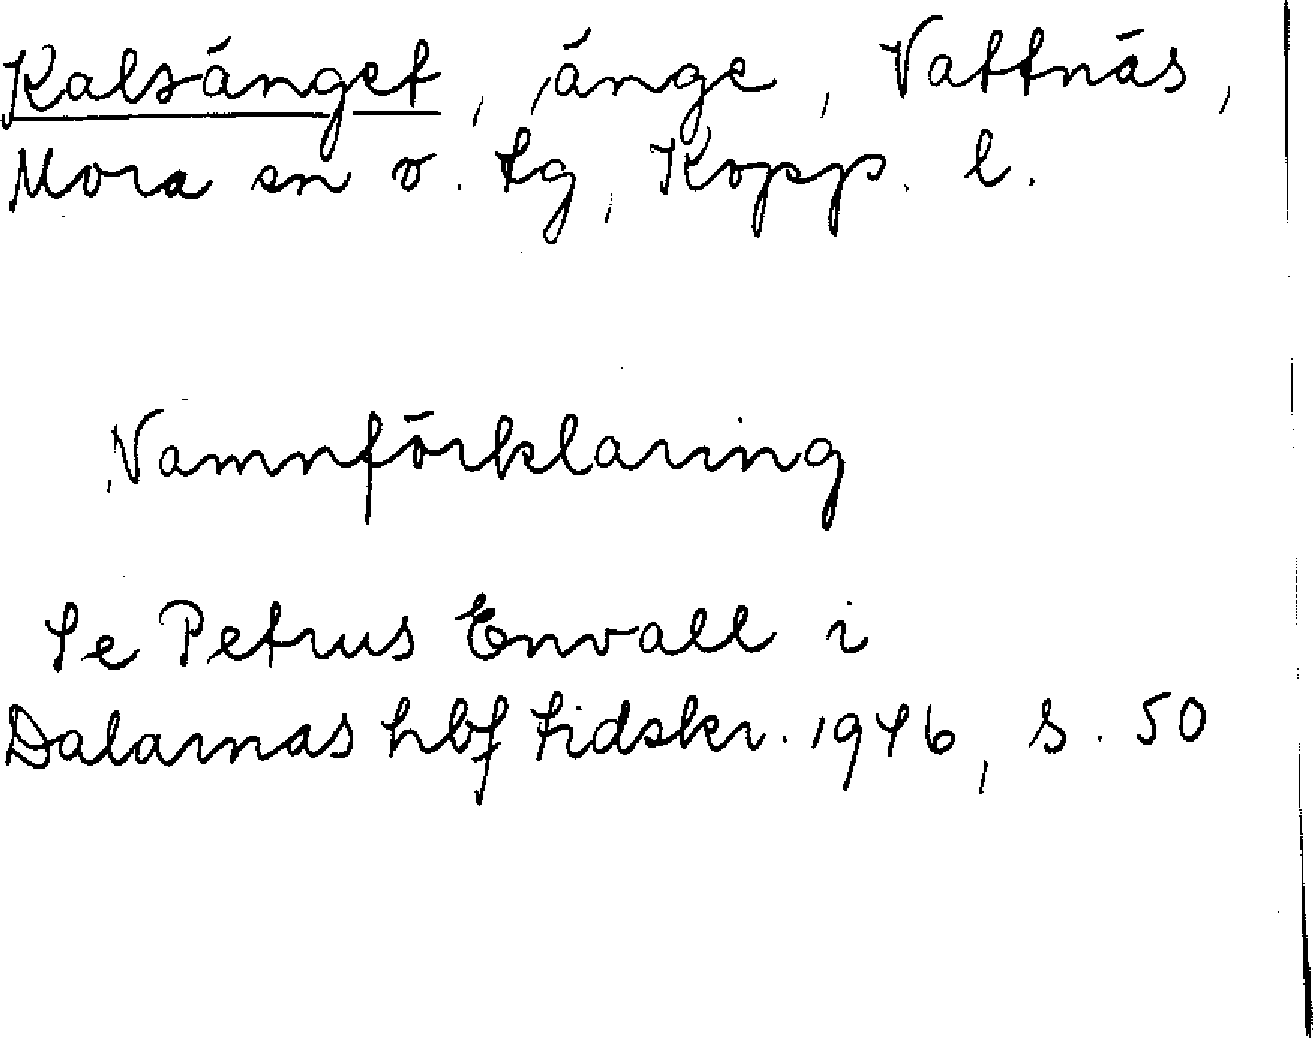 Kalsänget, änge, Vattnäs,
Mora sn o. tg, Kopp. l.
Namnförklaring
Se Petrus Envall i
Dalarnas hbf tidskr. 1946, s. 50